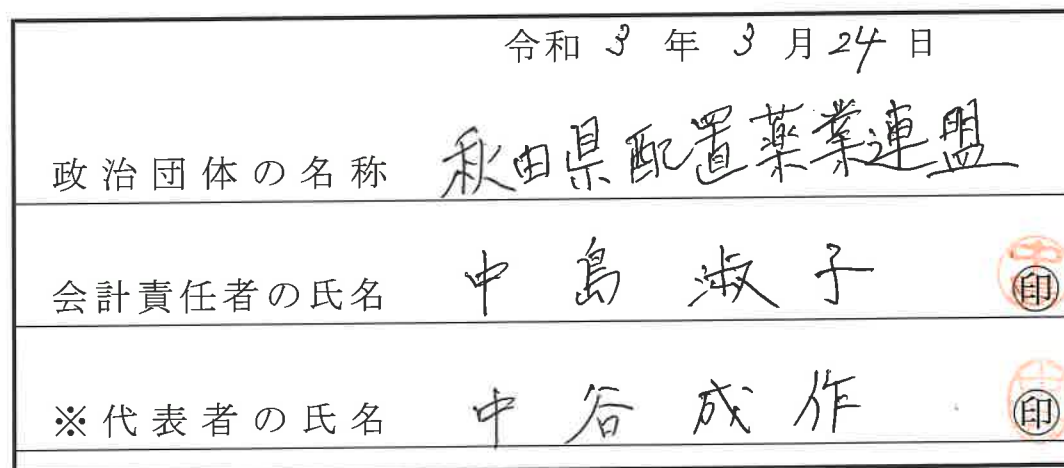 令和 3 年 3 月 24 日
政治団体の名称 秋田県配置薬業連盟
会計責任者の氏名 中島淑子 印
※代表者の氏名 中谷成作 印